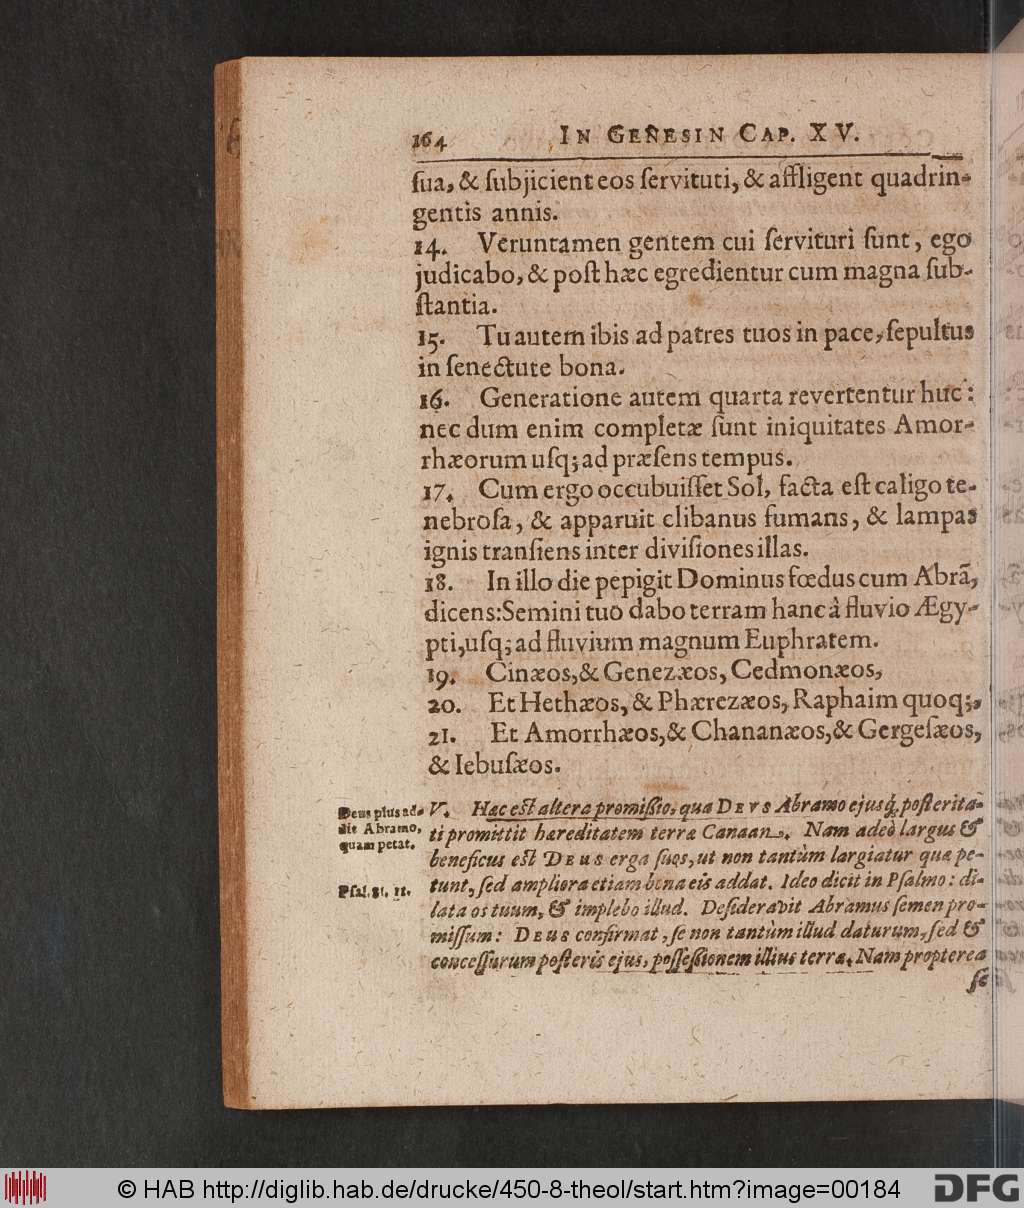 164 IN GENESIN CAP. XV.
ſua, & ſubjicient eos ſervituti, & affligent quadrin-
gentis annis.
14. Veruntamen gentem cui ſervituri ſunt, ego
judicabo, & poſt hæc egredientur cum magna ſub-
ſtantia.
15. Tu autem ibis ad patres tuos in pace, ſepultus
in ſenectute bona.
16. Generatione autem quarta revertentur huc:
nec dum enim completæ ſunt iniquitates Amor-
rhæorum uſq; ad præſens tempus.
17. Cum ergo occubuiſſet Sol, facta eſt caligo te-
nebroſa, & apparuit clibanus fumans, & lampas
ignis tranſiens inter diviſiones illas.
18. In illo die pepigit Dominus fœdus cum Abrã,
dicens: Semini tuo dabo terram hanc à fluvio Ægy-
pti, uſq; ad fluvium magnum Euphratem.
19. Cinæos, & Genezæos, Cedmonæos,
20. Et Hethæos, & Phærezæos, Raphaim quoq;,
21. Et Amorrhæos, & Chananæos, & Gergeſæos,
& Iebuſæos.
Deus plus ad-
dit Abramo,
quam petat.
Pſal. 81. 11.
V. Hæc eſt altera promiſſio, qua DEVS Abramo ejusq́; poſterita-
ti promittit hæreditatem terræ Canaan. Nam adeò largus &
beneficus eſt DEUS erga ſuos, ut non tantùm largiatur quæ pe-
tunt, ſed ampliora etiam bona eis addat. Ideo dicit in Pſalmo: di-
lata os tuum, & implebo illud. Deſideravit Abramus ſemen pro-
miſſum: DEUS confirmat, ſe non tantùm illud daturum, ſed &
conceſſurum poſteris ejus, poſſeſſionem illius terræ. Nam propterea
ſe
© HAB http://diglib.hab.de/drucke/450-8-theol/start.htm?image=00184
DFG